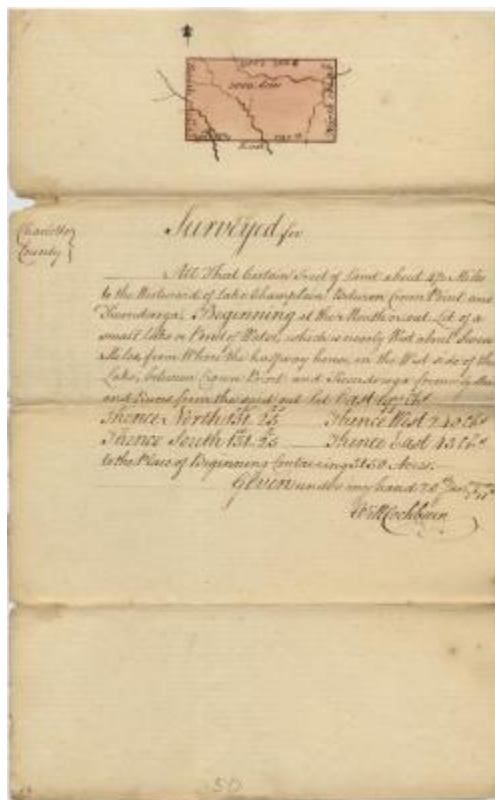 3000 Acres
East
Charlotte
County
Surveyed for
All That Certain Tract of Land about 4½ Miles
to the Westward of Lake Champlain Between Crown Point and
Ticonderoga, Beginning at the Mouth or out Let of a
small Lake or Pond of Water, which is nearly West about Seven
Miles, from Where the halfway house, on the West side of the
Lake, between Crown Point and Ticonderoga
and Runs from the said out Let East 197 Chs
Thence North 131 25 Thence West 240 Chs
Thence South 131 25 Thence East 43 Chs
to the Place of Beginning Containing 3150 Acres.
Given under my hand 20th
Will Cockburn
50